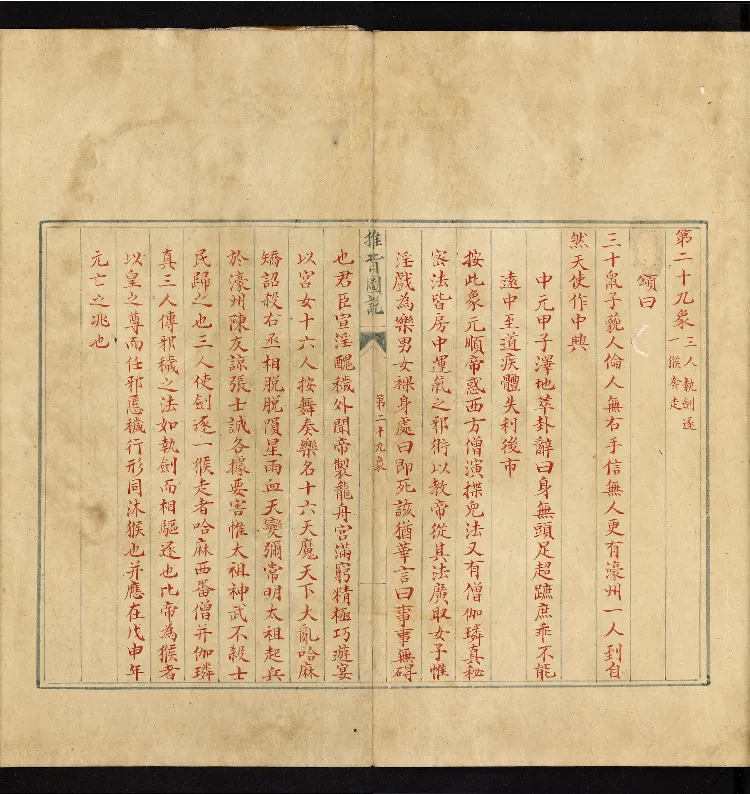 第二十九象 三人執劍逐
一猴奔走
頌曰
三十鼠子藐人倫人無右手信無人更有濠州一人到自
然天使作中興
中元甲子澤地萃卦辭曰身無頭足超蹠庶乖不能
遠中至道疾體失利後市
按此象元順帝惑西方僧演揲兒法又有僧伽璘真秘
密法皆房中運氣之邪術以教帝從其法廣取女子惟
淫戲為樂男女裸身處曰即死該猶華言曰事事無碍
推背圖說
第二十九象
也君臣宣淫醜穢外聞帝製龍舟宮滿窮精極巧遊宴
以宮女十六人按舞奏樂名十六天魔天下大亂哈麻
矯詔殺右丞相脫脫隕星雨血天變彌常明太祖起兵
於濠州陳友諒張士誠各據要害惟太祖神武不殺士
民歸之也三人使劍逐一猴走者哈麻西畨僧并伽璘
真三人傳邪穢之法如執劍而相驅逐也比帝為猴者
以皇之尊而任邪慝穢行形同沐猴也并應在戊申年
元亡之兆也